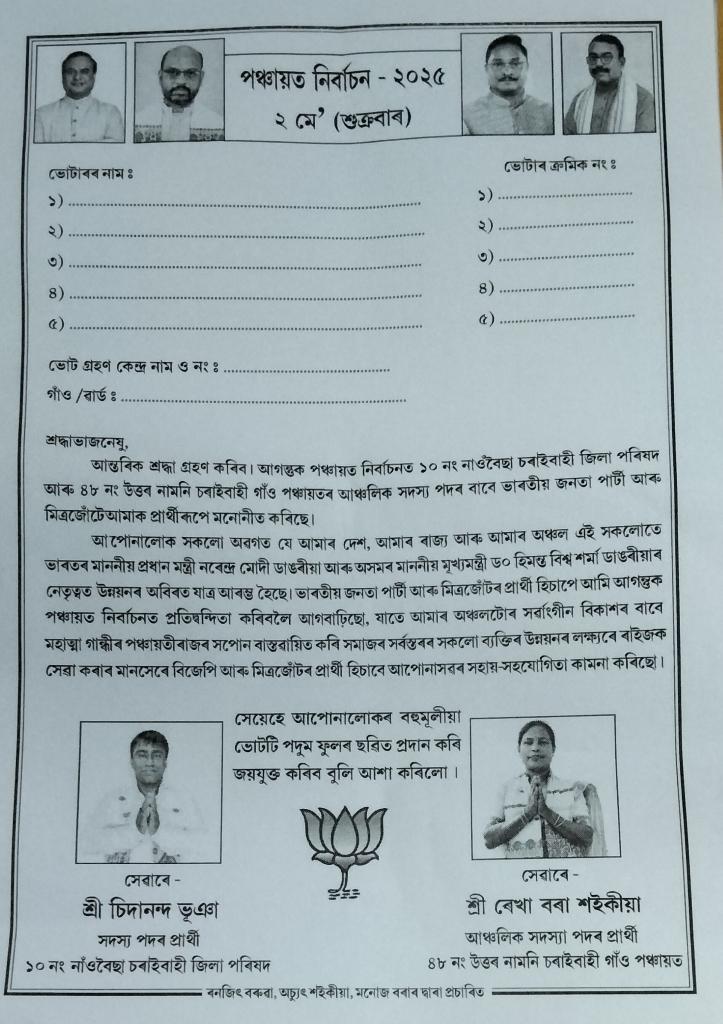 পঞ্চায়ত নিৰ্বাচন - ২০২৫
২ মে’ (শুক্ৰবাৰ)
ভোটাৰৰ নাম ঃ
১) ........................................
২) ........................................
৩) ........................................
৪) ........................................
৫) ........................................
ভোটাৰ ক্ৰমিক নং ঃ
১) ....................
২) ....................
৩) ....................
৪) ....................
৫) ....................
ভোট গ্ৰহণ কেন্দ্ৰ নাম ও নং ঃ ....................
গাঁও /ৱাৰ্ড ঃ ........................................
শ্ৰদ্ধাভাজনেষু,
আন্তৰিক শ্ৰদ্ধা গ্ৰহণ কৰিব। আগন্তুক পঞ্চায়ত নিৰ্বাচনত ১০ নং নাওঁবৈছা চৰাইবাহী জিলা পৰিষদ
আৰু ৪৮ নং উত্তৰ নামনি চৰাইবাহী গাঁও পঞ্চায়তৰ আঞ্চলিক সদস্য পদৰ বাবে ভাৰতীয় জনতা পাৰ্টী আৰু
মিত্ৰজোঁটেআমাক প্ৰাৰ্থীৰূপে মনোনীত কৰিছে।
আপোনালোক সকলো অৱগত যে আমাৰ দেশ, আমাৰ ৰাজ্য আৰু আমাৰ অঞ্চল এই সকলোতে
ভাৰতৰ মাননীয় প্ৰধান মন্ত্ৰী নৰেন্দ্ৰ মোদী ডাঙৰীয়া আৰু অসমৰ মাননীয় মুখ্যমন্ত্ৰী ড০ হিমন্ত বিশ্ব শৰ্মা ডাঙৰীয়াৰ
নেতৃত্বত উন্নয়নৰ অবিৰত যাত্ৰ আৰম্ভ হৈছে। ভাৰতীয় জনতা পাৰ্টী আৰু মিত্ৰজোঁটৰ প্ৰাৰ্থী হিচাপে আমি আগন্তুক
পঞ্চায়ত নিৰ্বাচনত প্ৰতিদ্বন্দিতা কৰিবলৈ আগবাঢ়িছো, যাতে আমাৰ অঞ্চলটোৰ সৰ্বাংগীন বিকাশৰ বাবে
মহাত্মা গান্ধীৰ পঞ্চায়তীৰাজৰ সপোন বাস্তৱায়িত কৰি সমাজৰ সৰ্বস্তৰৰ সকলো ব্যক্তিৰ উন্নয়নৰ লক্ষ্যৰে ৰাইজক
সেৱা কৰাৰ মানসেৰে বিজেপি আৰু মিত্ৰজোঁটৰ প্ৰাৰ্থী হিচাবে আপোনাসৱৰ সহায়-সহযোগিতা কামনা কৰিছো।
সেয়েহে আপোনালোকৰ বহুমূলীয়া
ভোটটি পদুম ফুলৰ ছবিত প্ৰদান কৰি
জয়যুক্ত কৰিব বুলি আশা কৰিলো।
সেৱাৰে -
শ্ৰী চিদানন্দ ভূঞা
সদস্য পদৰ প্ৰাৰ্থী
১০ নং নাওঁবৈছা চৰাইবাহী জিলা পৰিষদ
সেৱাৰে -
শ্ৰী ৰেখা বৰা শইকীয়া
আঞ্চলিক সদস্যা পদৰ প্ৰাৰ্থী
৪৮ নং উত্তৰ নামনি চৰাইবাহী গাঁও পঞ্চায়ত
ৰনজিৎ বৰুৱা, অচ্যুৎ শইকীয়া, মনোজ বৰাৰ দ্বাৰা প্ৰচাৰিত